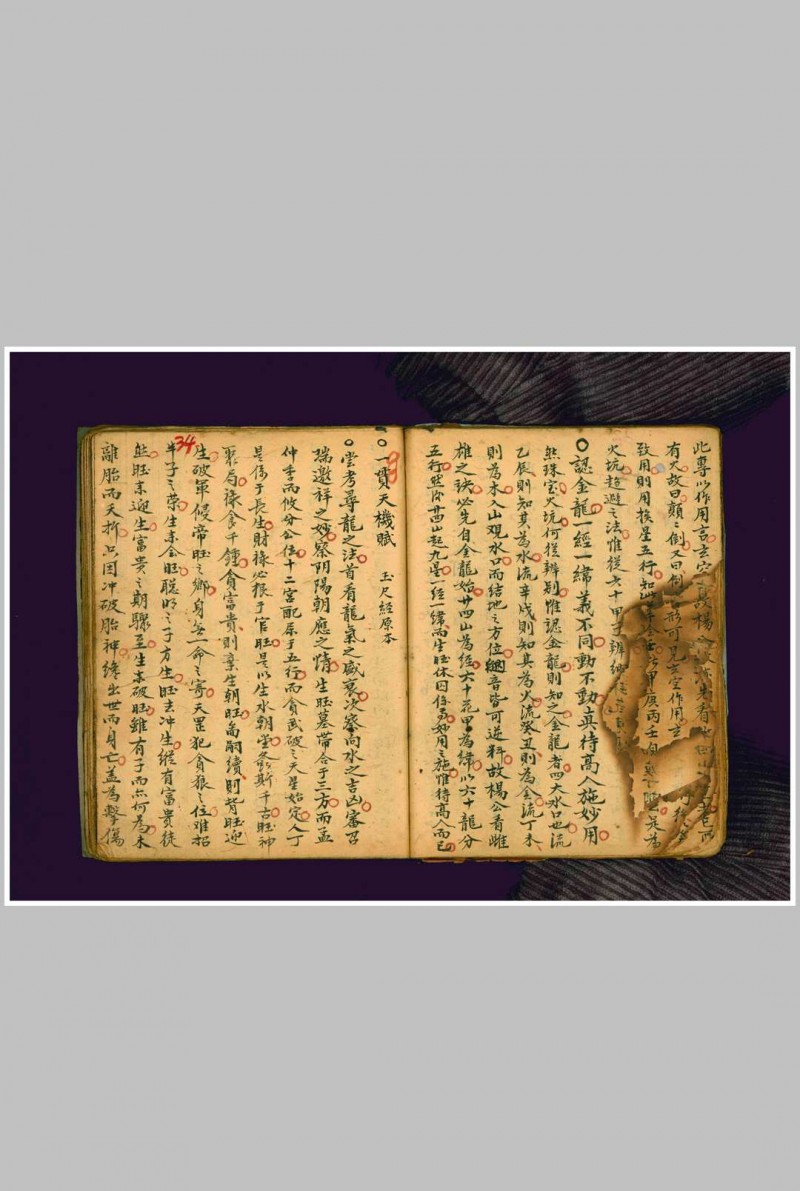 此專以作用言玄空
有天故曰顛〻倒又曰倒 形可見玄空作用
致用則用挨星五行 甲庚丙壬 是為
火坑趨避之法惟從六十甲子辨
認金龍一經一緯義不同動不動直待高人施妙用
然珠宝火坑何從辨別惟認金龍則知之金龍者四大水口也流
乙辰則知其為水流辛戌則知其為火流癸丑則為金流丁未
則為木入山觀水口而結地之方位 音皆可逆料故楊公看雌
雄之訣必先自金龍始廿四山為經六十花甲為緯以六十龍分
五行然 廿四山起九星一經一緯而生旺休囚 妙用之施惟待高人而已
一貫天機賦 玉尺經原本
雲考尋龍之法首看龍氣之盛衰次察向水之吉凶審召
瑞邀祥之妙察阴陽朝應之情生旺墓帶合于三方而孟
仲季而攸分公位十二宮配屬于五行而貪武破之天星始定人丁
是係于長生財祿必根于官旺是以生水朝堂螽斯千古旺神
聚局祿食千鍾貪富貴則棄生朝旺啇嗣續則背旺迎
生破軍侵帝旺之鄉身無一命之寄天罡犯貪狼之位难招
半子之荣生來會旺聪明之子方生旺去冲生縱有富貴徒
然旺來迎生富貴之期驟至生來破旺雖有子而亦何為未
離胎而夭折只因冲破胎神纔出世而身亡盖為擊傷
34